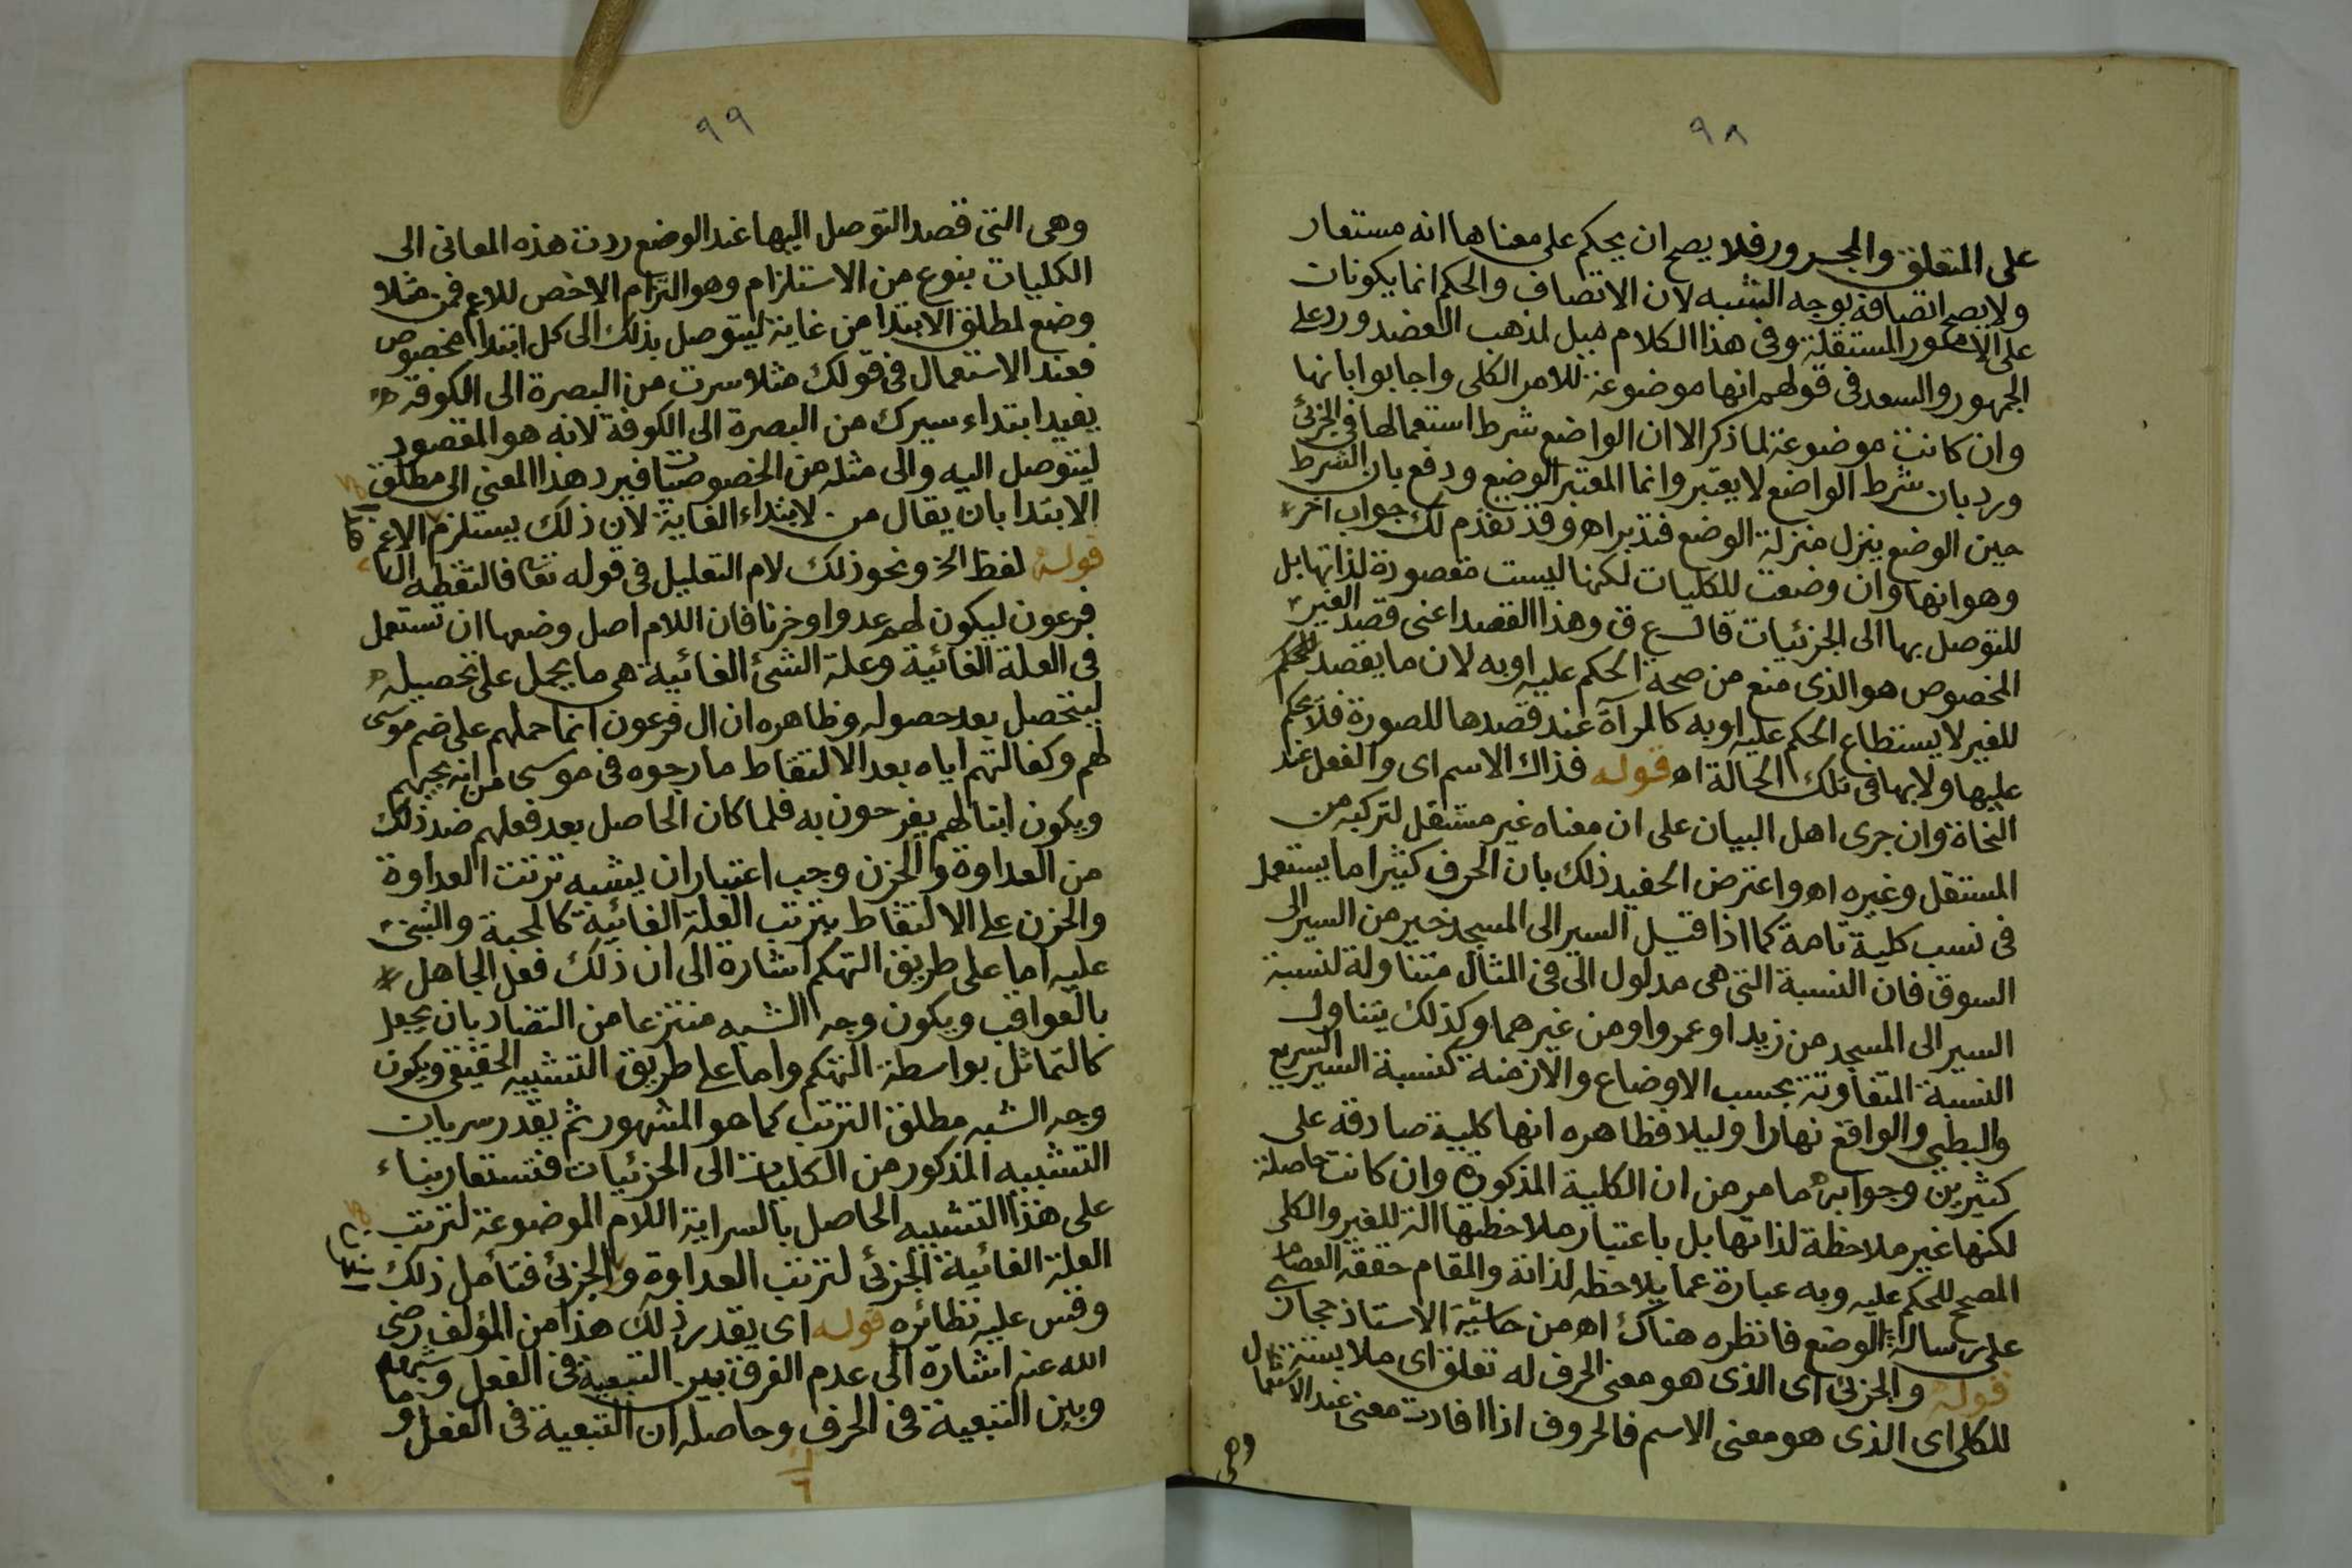 ٩٨
على المتعلق والمجرور فلا يصح ان يحكم على معناها انه مستعار
ولا يصح اتصافه بوجه الشبه لان الاتصاف والحكم انما يكونان
على الامور المستقلة وفى هذا الكلام ميل لمذهب العضد ورد على
الجمهور والسعد فى قولهم انها موضوعة للامر الكلى واجابوا بانها
وان كانت موضوعة لما ذكر الا ان الواضع شرط استعمالها فى الجزئ
ورد بان شرط الواضع لا يعتبر وانما المعتبر الوضع ودفع بان الشرط
حين الوضع ينزل منزلة الوضع فتدبر اه وقد تقدم لك جواب اخر
وهو انها وان وضعت للكليات لكنها ليست مقصورة لذاتها بل
للتوصل بها الى الجزئيات قال س ع ق وهذا القصد اعنى قصد الغير
المخصوص هو الذى منع من صحة الحكم عليه او به لان ما يقصد للحكم
للغير لا يستطاع الحكم عليه او به كالمرآة عند قصدها للصورة فلا يحكم
عليها ولا بها فى تلك الحالة اه قوله فذاك الاسم اى والفعل عند
النحاة وان جرى اهل البيان على ان معناه غير مستقل لتركبه من
المستقل وغيره اه واعترض الحفيد ذلك بان الحرف كثيرا ما يستعمل
فى نسب كلية تامة كما اذا قيل السير الى المسجد خير من السير الى
السوق فان النسبة التى هى مدلول الى فى المثال متناولة لنسبة
السير الى المسجد من زيد او عمرو او من غيرهما وكذلك يتناول
النسبة المتفاوتة بحسب الاوضاع والازمنة كنسبة السير السريع
والبطيى والواقع نهارا وليلا فظاهره انها كلية صادقة على
كثيرين وجوابه ما مر من ان الكلية المذكورة وان كانت حاصلة
لكنها غير ملاحظة لذاتها بل باعتبار ملاحظتها الة للغير والكلى
المصحح للحكم عليه وبه عبارة عما يلاحظ لذاته والمقام حققه العصام
على رسالة الوضع فانظره هناك اه من حاشية الاستاذ حجازى
قوله والجزئ اى الذى هو معنى الحرف له تعلق اى ملابسة
للكلى اى الذى هو معنى الاسم فالحروف اذا افادت معنى عند الاستعمال
وهى
٩٩
وهى التى قصد التوصل اليها عند الوضع ردت هذه المعانى الى
الكليات بنوع من الاستلزام وهو التزام الاخص للاعم فمن مثلا
وضع لمطلق الابتدا من غاية ليتوصل بذلك الى كل ابتدا مخصوص
فعند الاستعمال فى قولك مثلا سرت من البصرة الى الكوفة
يفيد ابتداء سيرك من البصرة الى الكوفة لانه هو المقصود
ليتوصل اليه والى مثله من الخصوصيات فيرد هذا المعنى الى مطلق
الابتدا بان يقال من لابتداء الغاية لان ذلك يستلزم الاعم
قوله لفظ الخ ونحو ذلك لام التعليل فى قوله تعا فالتقطه ال
فرعون ليكون لهم عدوا وحزنا فان اللام اصل وضعها ان تستعمل
فى العلة الغائية وعلة الشئ الغائية هى ما يحمل على تحصيله
ليتحصل بعد حصوله وظاهره ان ال فرعون انما حملهم على ضم موسى
لهم وكفالتهم اياه بعد الالتقاط ما رجوه فى موسى من انه يحبهم
ويكون ابنا لهم يفرحون به فلما كان الحاصل بعد فعلهم ضد ذلك
من العداوة والحزن وجب اعتبار ان يشبه ترتب العداوة
والحزن على الالتقاط بترتب العلة الغائية كالمحبة والتبنى
عليه اما على طريق التهكم اشارة الى ان ذلك فعل الجاهل
بالعواقب ويكون وجه الشبه منتزعا من التضاد بان يجعل
كالتماثل بواسطة التهكم واما على طريق التشبيه الحقيقى ويكون
وجه الشبه مطلق الترتب كما هو المشهور ثم يقدر سريان
التشبيه المذكور من الكليات الى الجزئيات فتستعار بناء
على هذا التشبيه الحاصل بالسراية اللام الموضوعة لترتب
العلة الغائية الجزئ لترتب العداوة والجزئ فتأمل ذلك
وقس عليه نظائره قوله اى يقدر ذلك هذا من المؤلف رضى
الله عنه اشارة الى عدم الفرق بين التبعية فى الفعل
وبين التبعية فى الحرف وحاصله ان التبعية فى الفعل و